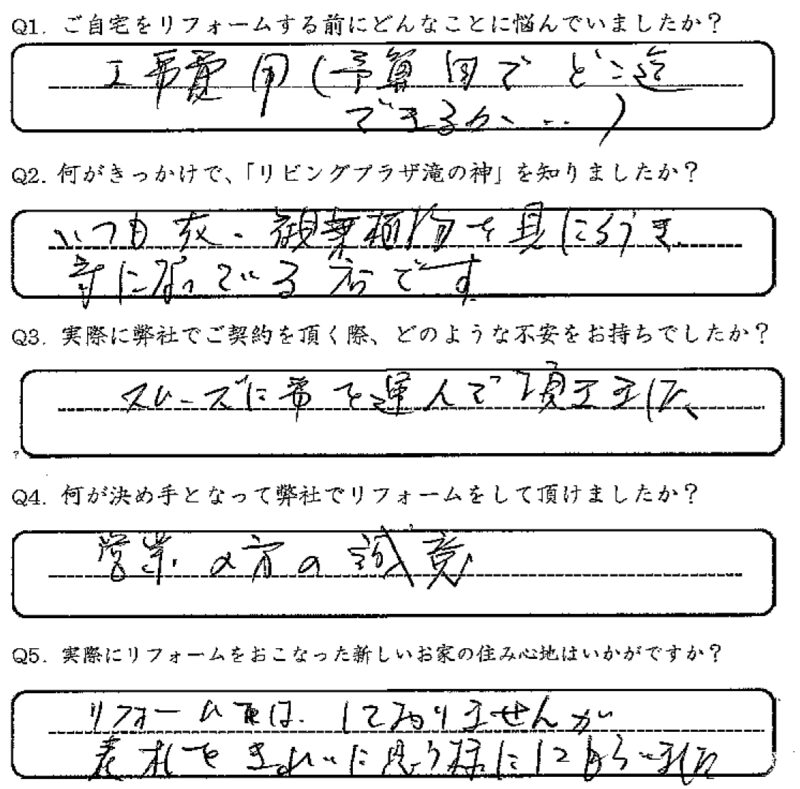 Q1. ご自宅をリフォームする前にどんなことに悩んでいましたか？
工事費用(予算内でどこ迄
できるか…)
Q2. 何がきっかけで、「リビングプラザ滝の神」を知りましたか？
いつも花、観葉植物を見に行き、
気になっている店です
Q3. 実際に弊社でご契約を頂く際、どのような不安をお持ちでしたか？
スムーズに事を運んで頂きました、
Q4. 何が決め手となって弊社でリフォームをして頂けましたか？
営業の方の誠意
Q5. 実際にリフォームをおこなった新しいお家の住み心地はいかがですか？
リフォームでは、しておりませんが
表札をきれいに思う様にして もらいました